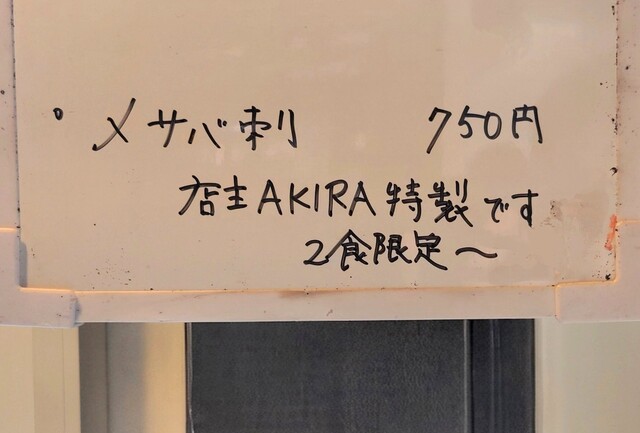 。メサバ刺 750円
店主AKIRA特製です
2食限定〜